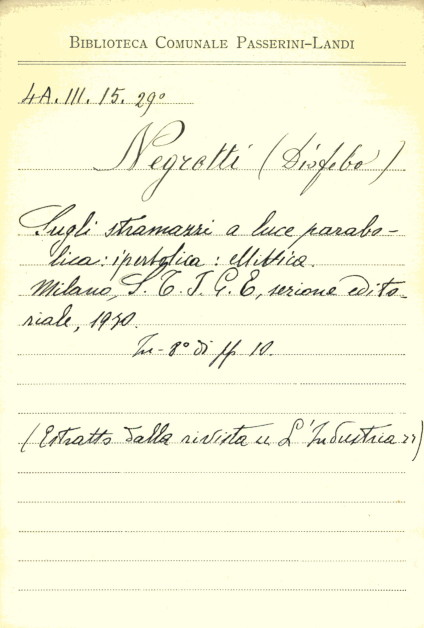 BIBLIOTECA COMUNALE PASSERINI-LANDI
4A. III. 15. 29°
Negrotti (Disfebo)
Sugli stramazzi a luce parabo-
lica: iperbolica: ellittica.
Milano, S. T. I. G. E, sezione edito-
riale, 1930.
In-8° di pp 10.
(Estratto dalla rivista "L'Industria")